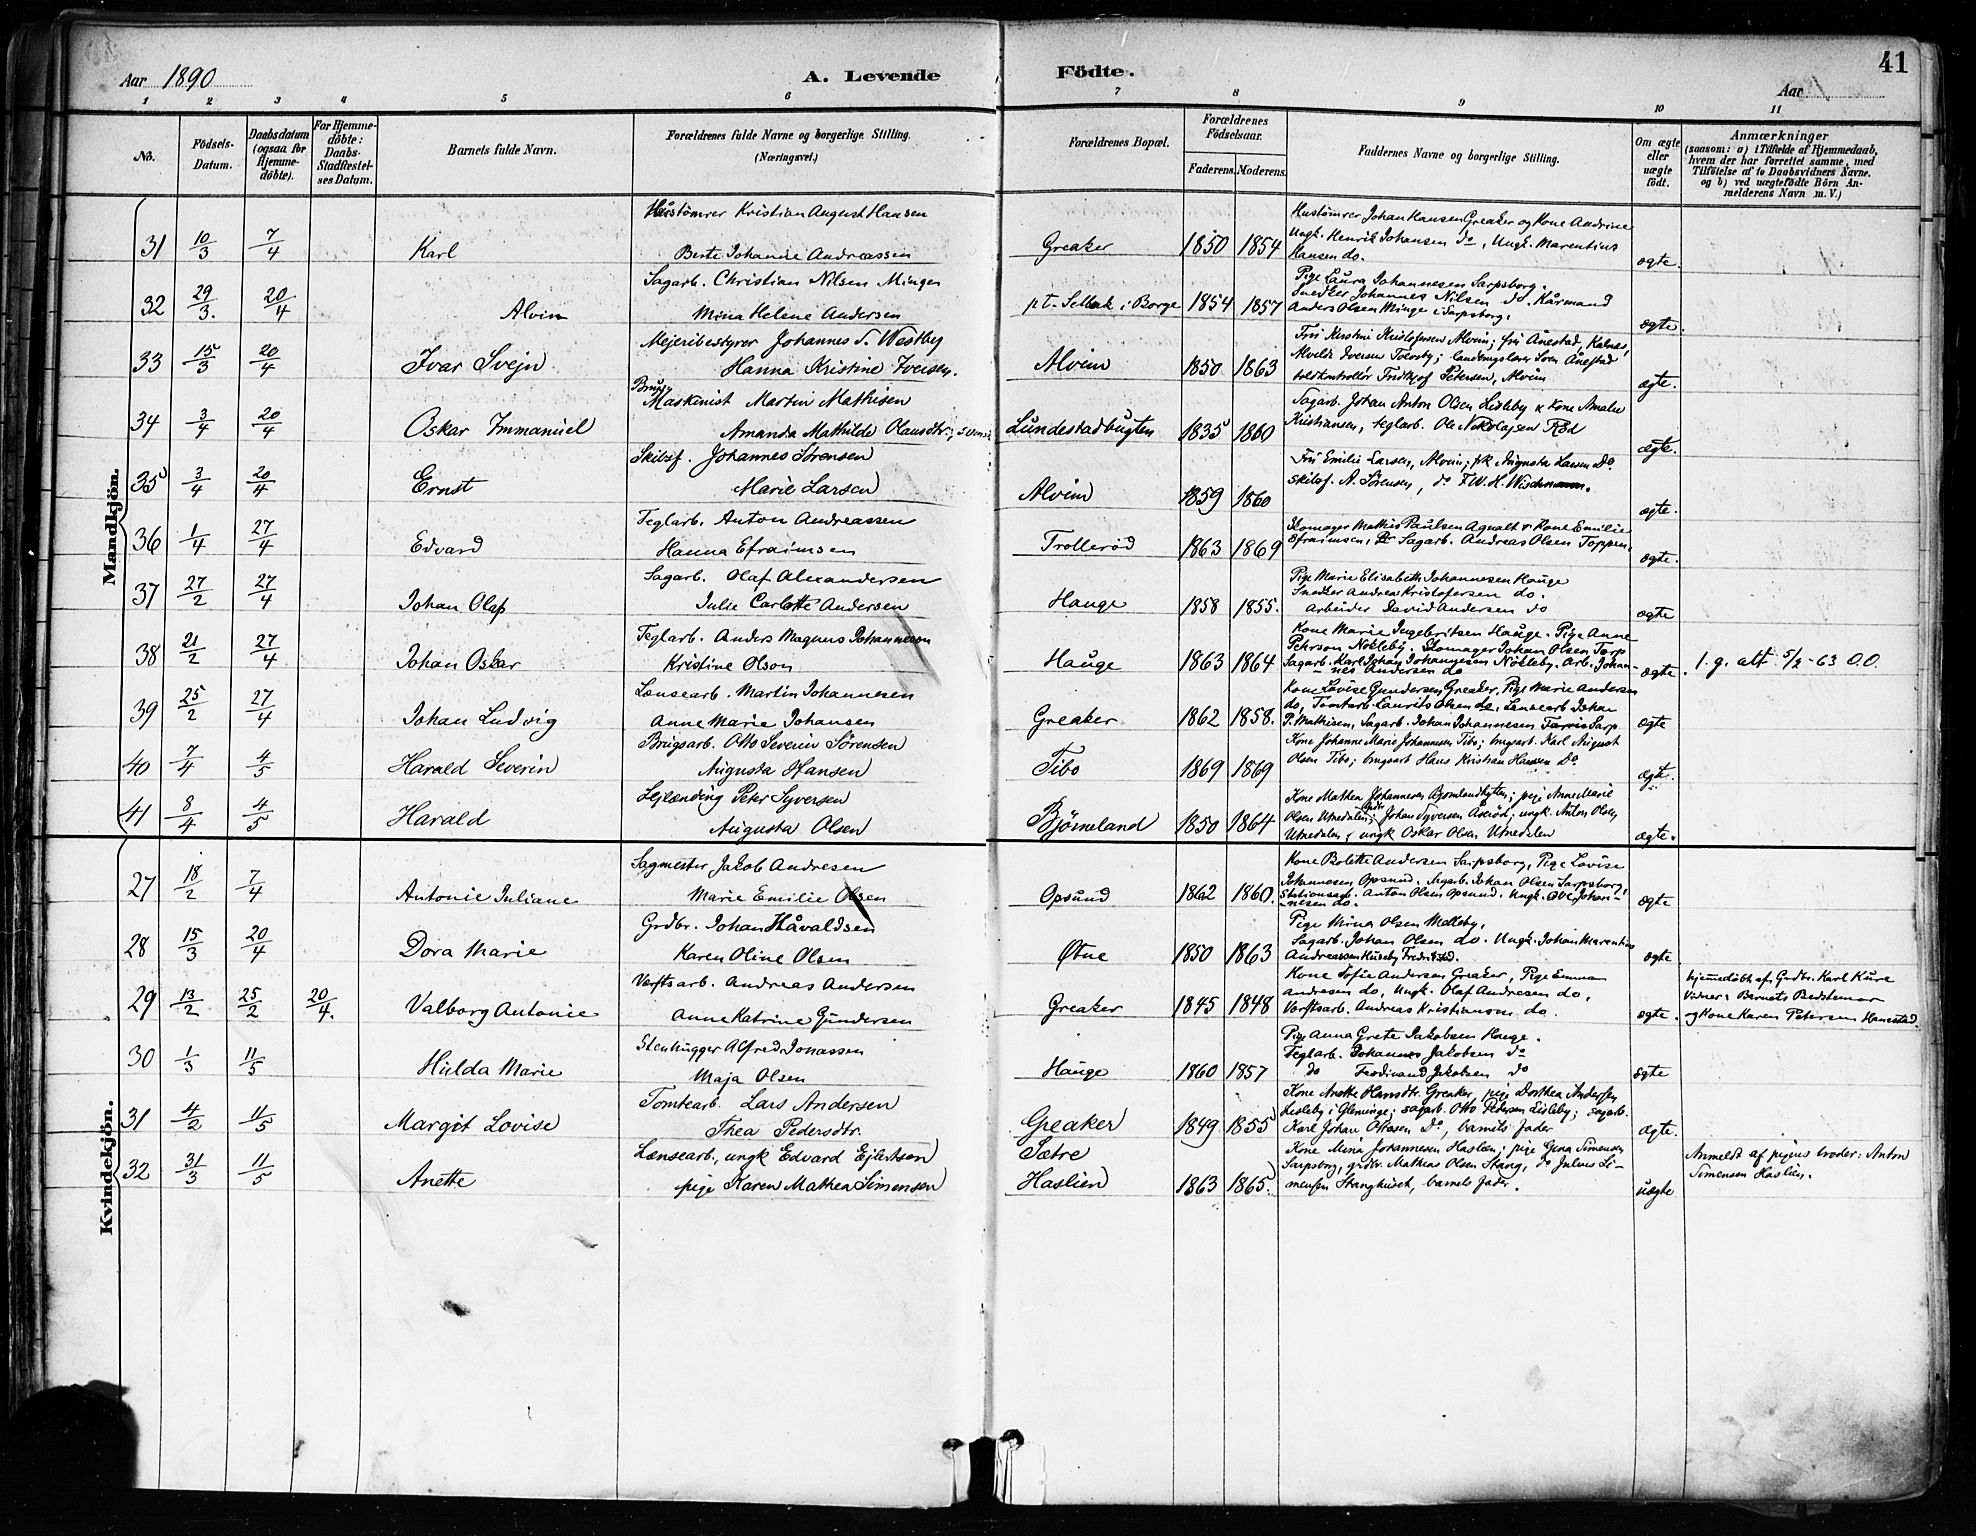 Aar 1890
A. Levende Födte.
41
Aar
1 2 3 4 5 6 7 8 9 10 11
No.
Födsels-Datum.
Daabsdatum (ogsaa for Hjemme-döbte).
For Hjemme-döbte: Daabs-Stadfæstelses Datum.
Barnets fulde Navn.
Forældrenes fulde Navne og borgerlige Stilling. (Næringsvei.)
Forældrenes Bopæl.
Forældrenes Födselsaar.
Faderens. Moderens.
Faddernes Navne og borgerlige Stilling.
Om ægte eller uægte födt.
Anmærkninger (saasom: a) i Tilfælde af Hjemmedaab, hvem der har forrettet samme, med Tilföielse af to Daabsvidners Navne, og b) ved uægtefödte Börn Anmelderens Navn m. V.)
Mandkjön.
31 10/3 7/4 Karl
Hustømrer Kristian August Hansen
Berte Johanne Andreassen
Greaker 1850 1854
Hustømrer Johan Hansen Greaker og Kone Andrine
Ungk. Henrik Johansen do, Ungk. Marentius
Hansen do.
ægte.
32 29/3. 20/4 Alvin
Sagarb. Christian Nilsen Minger
Mina Helene Andersen
p.t. i Borge 1854 1857
Pige Laura Johannesen Sarpsborg.
Snedker Johannes Nilsen do. Kårmand
Anders Olsen Minge i Sarpsborg.
ægte.
33 15/3 20/4 Ivar Svejn
Mejeribestyrer Johannes S. Westby
Hanna Kristine Iversen.
Alvim 1850 1863
Fru Kirstine Kristofersen Alvim; fru Ånestad, Kalnes,
Iversen Tolesby; landbrugslærer Søren Ånestad
toldkontrollør Fridthjof Petersen, Alvim
ægte.
34 3/4 20/4 Oskar Immanuel
Brugs Maskinist Martin Mathisen
Amanda Mathilde Olausdtr.,
Lundestadbugten 1835 1860
Sagarb. Johan Anton Olsen Lisleby & Kone Amalie
Kristiansen, teglarb. Ole Nikolajsen Rød
ægte.
35 3/4 20/4 Ernst
Skibsf. Johannes Sørensen
Marie Larsen
Alvim 1859 1860
Fru Emilie Larsen, Alvim; frk Augusta Larsen Do.
Skibsf. A. Sørensen, do F.W.H.
ægte.
36 1/4 27/4 Edvard
Teglarb. Anton Andreassen
Hanna Efraimsen
Trollerød 1863 1869
Skomager Mathis Paulsen Agnalt & Kone Emilie
Efraimsen, Sagarb. Andreas Olsen Toppen.
ægte.
37 27/2 27/4 Johan Olaf
Sagarb. Olaf Alexandersen
Julie Carlotte Andersen
Hauge 1858 1855.
Pige Marie Elisabeth Johannesen Hauge
Snedker Andrea Kristofersen do.
Arbeider David Andersen do
ægte
38 21/2 27/4 Johan Oskar
Teglarb. Anders Magnus Johannesen
Kristine Olson
Hauge 1863 1864
Kone Marie Ingebritsen Hauge. Pige Anne
Peterson Nökleby. Skomager Johan Olsen Torp
Sagarb. Karl Johan Johannesen Nökleby. Arb. Johan-
nes Andersen do
ægte.
1. g. alt. 5/2 - 63 O.O.
39 25/2 27/4 Johan Ludvig
Lænsearb. Martin Johannesen
Anne Marie Johansen
Greaker 1862 1858.
Kone Lovise Gundersen Greaker, Pige Marie Andersen
do, Tomtarb. Laurits Olsen do, Lænsearb Johan
P. Mathisen, Sagarb. Johan Johannesen Sarp
ægte
40 7/4 4/5 Harald Severin
Brugsarb. Otto Severin Sørensen
Augusta Hansen
Tibo 1869 1869
Kone Johanne Marie Johannesen Tibo; brugsarb. Karl August
Olsen Tibo; brugsarb Hans Kristian Hansen Do.
ægte.
41 8/4 4/5 Harald
Lejlænding Peter Syversen
Augusta Olsen
Bjørneland 1850 1864
Kone Mathea Johannesen Bjørnlandhytten; pige Anne Marie
Olsen Utnedalen; Johan Syversen Åserød, ungk. Anton Olsen
Utnedalen, ungk Oskar Olsen Utnedalen
ægte.
Kvindekjön.
27 18/2 7/4 Antonie Juliane
Sagmester Jakob Andresen
Marie Emilie Olsen
Opsund 1862 1860.
Kone Bolette Andersen Sarpsborg, Pige Lovise
Johannesen Opsund. Sagarb. Johan Olsen Sarpsborg,
Stationsarb. Anton Olsen Opsund. Ungk. Ove Johan-
nesen do.
ægte
28 15/3 20/4 Dora Marie
Grdbr. Johan Håvaldsen
Karen Oline Olsen
Øtne 1850 1863
Pige Mina Olsen Melleby,
Sagarb. Johan Olsen do. Ungk. Johan Marentius
Andreassen Huseby Fredrikstad.
ægte
29 13/2 25/2 20/4. Valborg Antonie
Værftsarb. Andreas Andersen
Anne Katrine Gundersen
Greaker 1845 1848
Kone Sofie Andersen Greaker, Pige Emma
Andresen do, Ungk. Olaf Andresen do,
Værftsarb. Andreas Kristiansen do.
ægte.
hjemmedöbt af Grdbr. Karl Kure
Vidner: Barnets Bedstemor
og Kone Karen Petersen Hanestad.
30 1/3 11/5 Hulda Marie
Stenhugger Alfred Jonassen
Maja Olsen
Hauge 1860 1857
Pige Anna Grete Jakobsen Hauge.
Teglarb. Johannes Jakobsen do
do Ferdinand Jakobsen do
ægte
31 4/2 11/5 Margit Lovise
Tomtearb. Lars Andersen
Thea Pedersdtr.
Greaker 1849 1855
Kone Anette Hansdtr. Greaker, pige Dorthea Andersen
Lisleby i Glemminge; sagarb. Otto Petersen Lisleby; sagarb.
Karl Johan Ottosen Do, barnets fader
ægte.
32 31/3 11/5 Anette
Lænsearb, ungk Edvard Ejlertsen
pige Karen Mathea Simensen
Sætre
Haslien 1863 1865.
Kone Mina Johannesen Haslien; pige Gina Simensen
Sarpsborg, grdbr. Mathias Olsen Stang, do Julius Si-
mensen Stanghuset, barnets fader.
uægte
Anmeldt af pigens broder: Anton
Simensen Haslien.